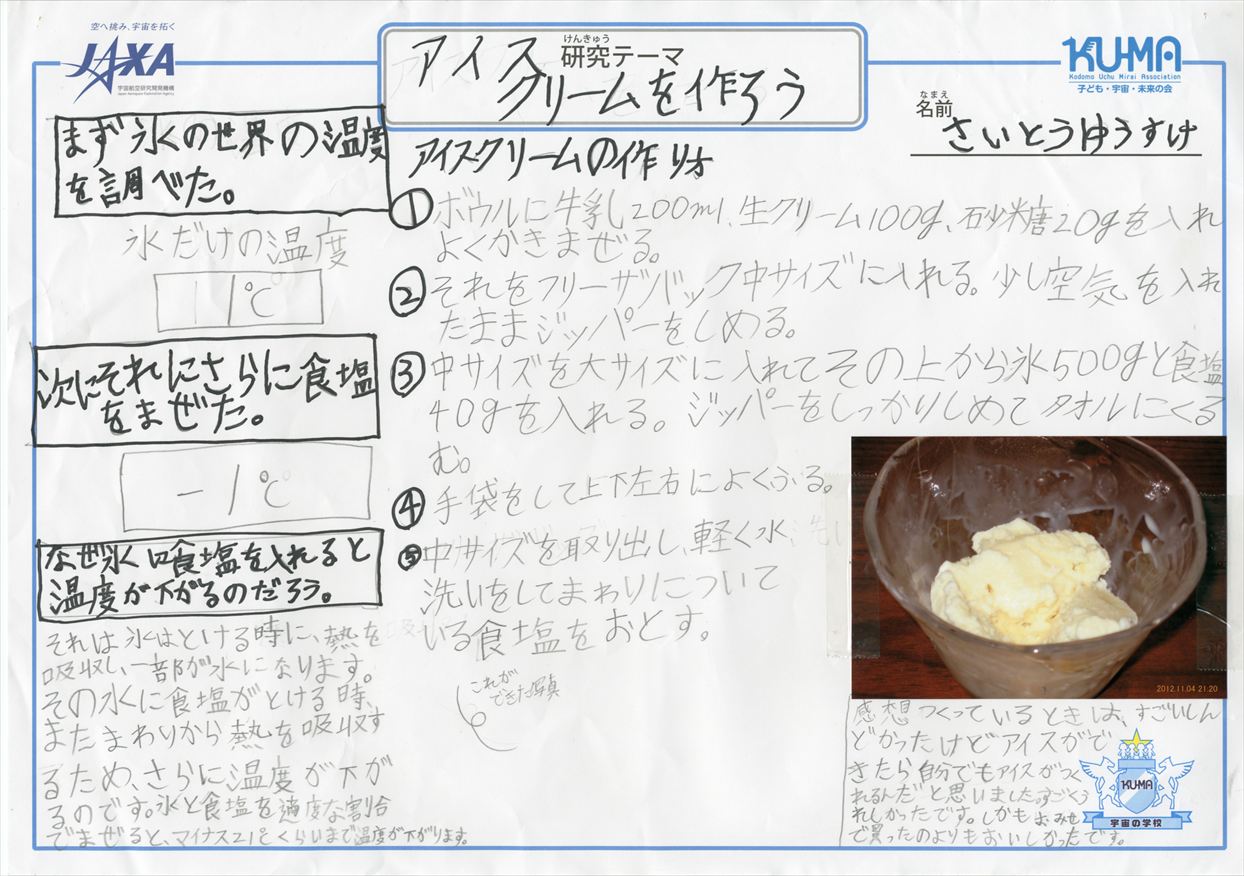 空へ挑み、宇宙を拓く
JAXA
宇宙航空研究開発機構
Japan Aerospace Exploration Agency
けんきゅう
研究テーマ
アイス
クリームを作ろう
KU-MA
Kodomo Uchu Mirai Association
子ども・宇宙・未来の会
なまえ
名前
さいとうゆうすけ
まず氷の世界の温度
を調べた。
氷だけの温度
1℃
次にそれにさらに食塩
をまぜた。
-1℃
なぜ氷に食塩を入れると
温度が下がるのだろう。
それは氷はとける時に、熱を
吸収し、一部が水になります。
その水に食塩がとける時、
またまわりから熱を吸収す
るため、さらに温度が下が
るのです。氷と食塩を適度な割合
でまぜると、マイナス21℃くらいまで温度が下がります。
アイスクリームの作り方
①ボウルに牛乳200ml、生クリーム100g、砂糖20gを入れ
よくかきまぜる。
②それをフリーザバック中サイズに入れる。少し空気を入れ
たままジッパーをしめる。
③中サイズを大サイズに入れてその上から氷500gと食塩
40gを入れる。ジッパーをしっかりしめてタオルにくる
む。
④手袋をして上下左右によくふる。
⑤中サイズを取り出し、軽く水
洗いをしてまわりについて
いる食塩をおとす。
これが
できた写真
2012.11.04 21:20
感想 つくっているときは、すごいしん
どかったけどアイスがで
きたら自分でもアイスがつく
れるんだ と思いました。すごくう
れしかったです。しかもおみせ
で買ったのよりもおいしかったです。
KUMA
宇宙の学校